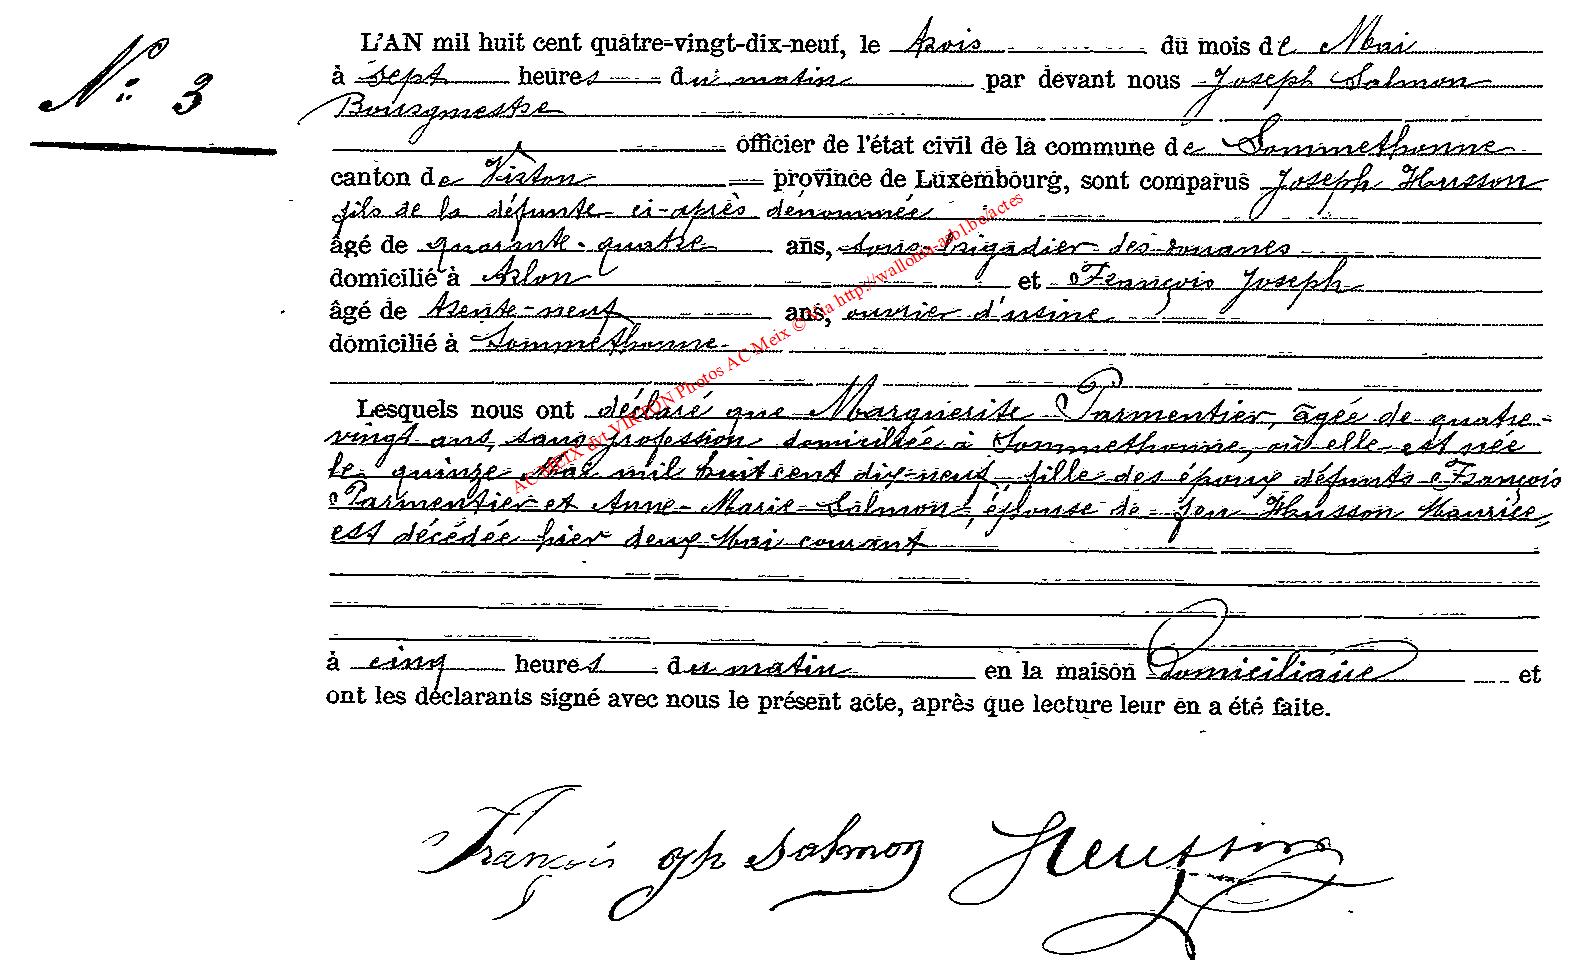 N° 3
L'AN mil huit cent quatre-vingt-dix-neuf, le trois du mois de Mai
à sept heures du matin par devant nous Joseph Salmon
Bourgmestre
officier de l'état civil de la commune de Sommethonne
canton de Virton province de Luxembourg, sont comparus Joseph Husson
fils de la défunte ci-après dénommée
âgé de quarante-quatre ans, sous-brigadier des douanes
domicilié à Arlon et François Joseph
âgé de trente-neuf ans, ouvrier d'usine
domicilié à Sommethonne
Lesquels nous ont déclaré que Marguerite Parmentier, âgée de quatre-
vingt ans, sans profession domiciliée à Sommethonne, où elle est née
le quinze mai mil huit cent dix-neuf, fille des époux défunts François
Parmentier et Anne-Marie Salmon, épouse de feu Husson Maurice,
est décédée hier deux Mai courant
à cinq heures du matin en la maison Domiciliaire et
ont les déclarants signé avec nous le présent acte, après que lecture leur en a été faite.
François Jph Salmon Husson
AC MEIX dvt VIRTON Photos AC Meix © via http://wallonia-asbl.be/actes